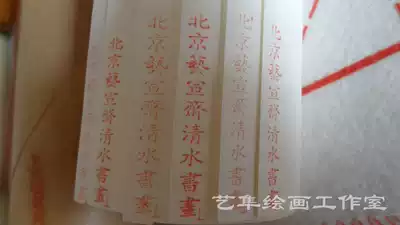 北京藝宣齋清水書畫
北京藝宣齋清水書畫
北京藝宣齋清水書畫
北京藝宣齋清水書畫
北京藝宣齋清水書畫
艺隼绘画工作室